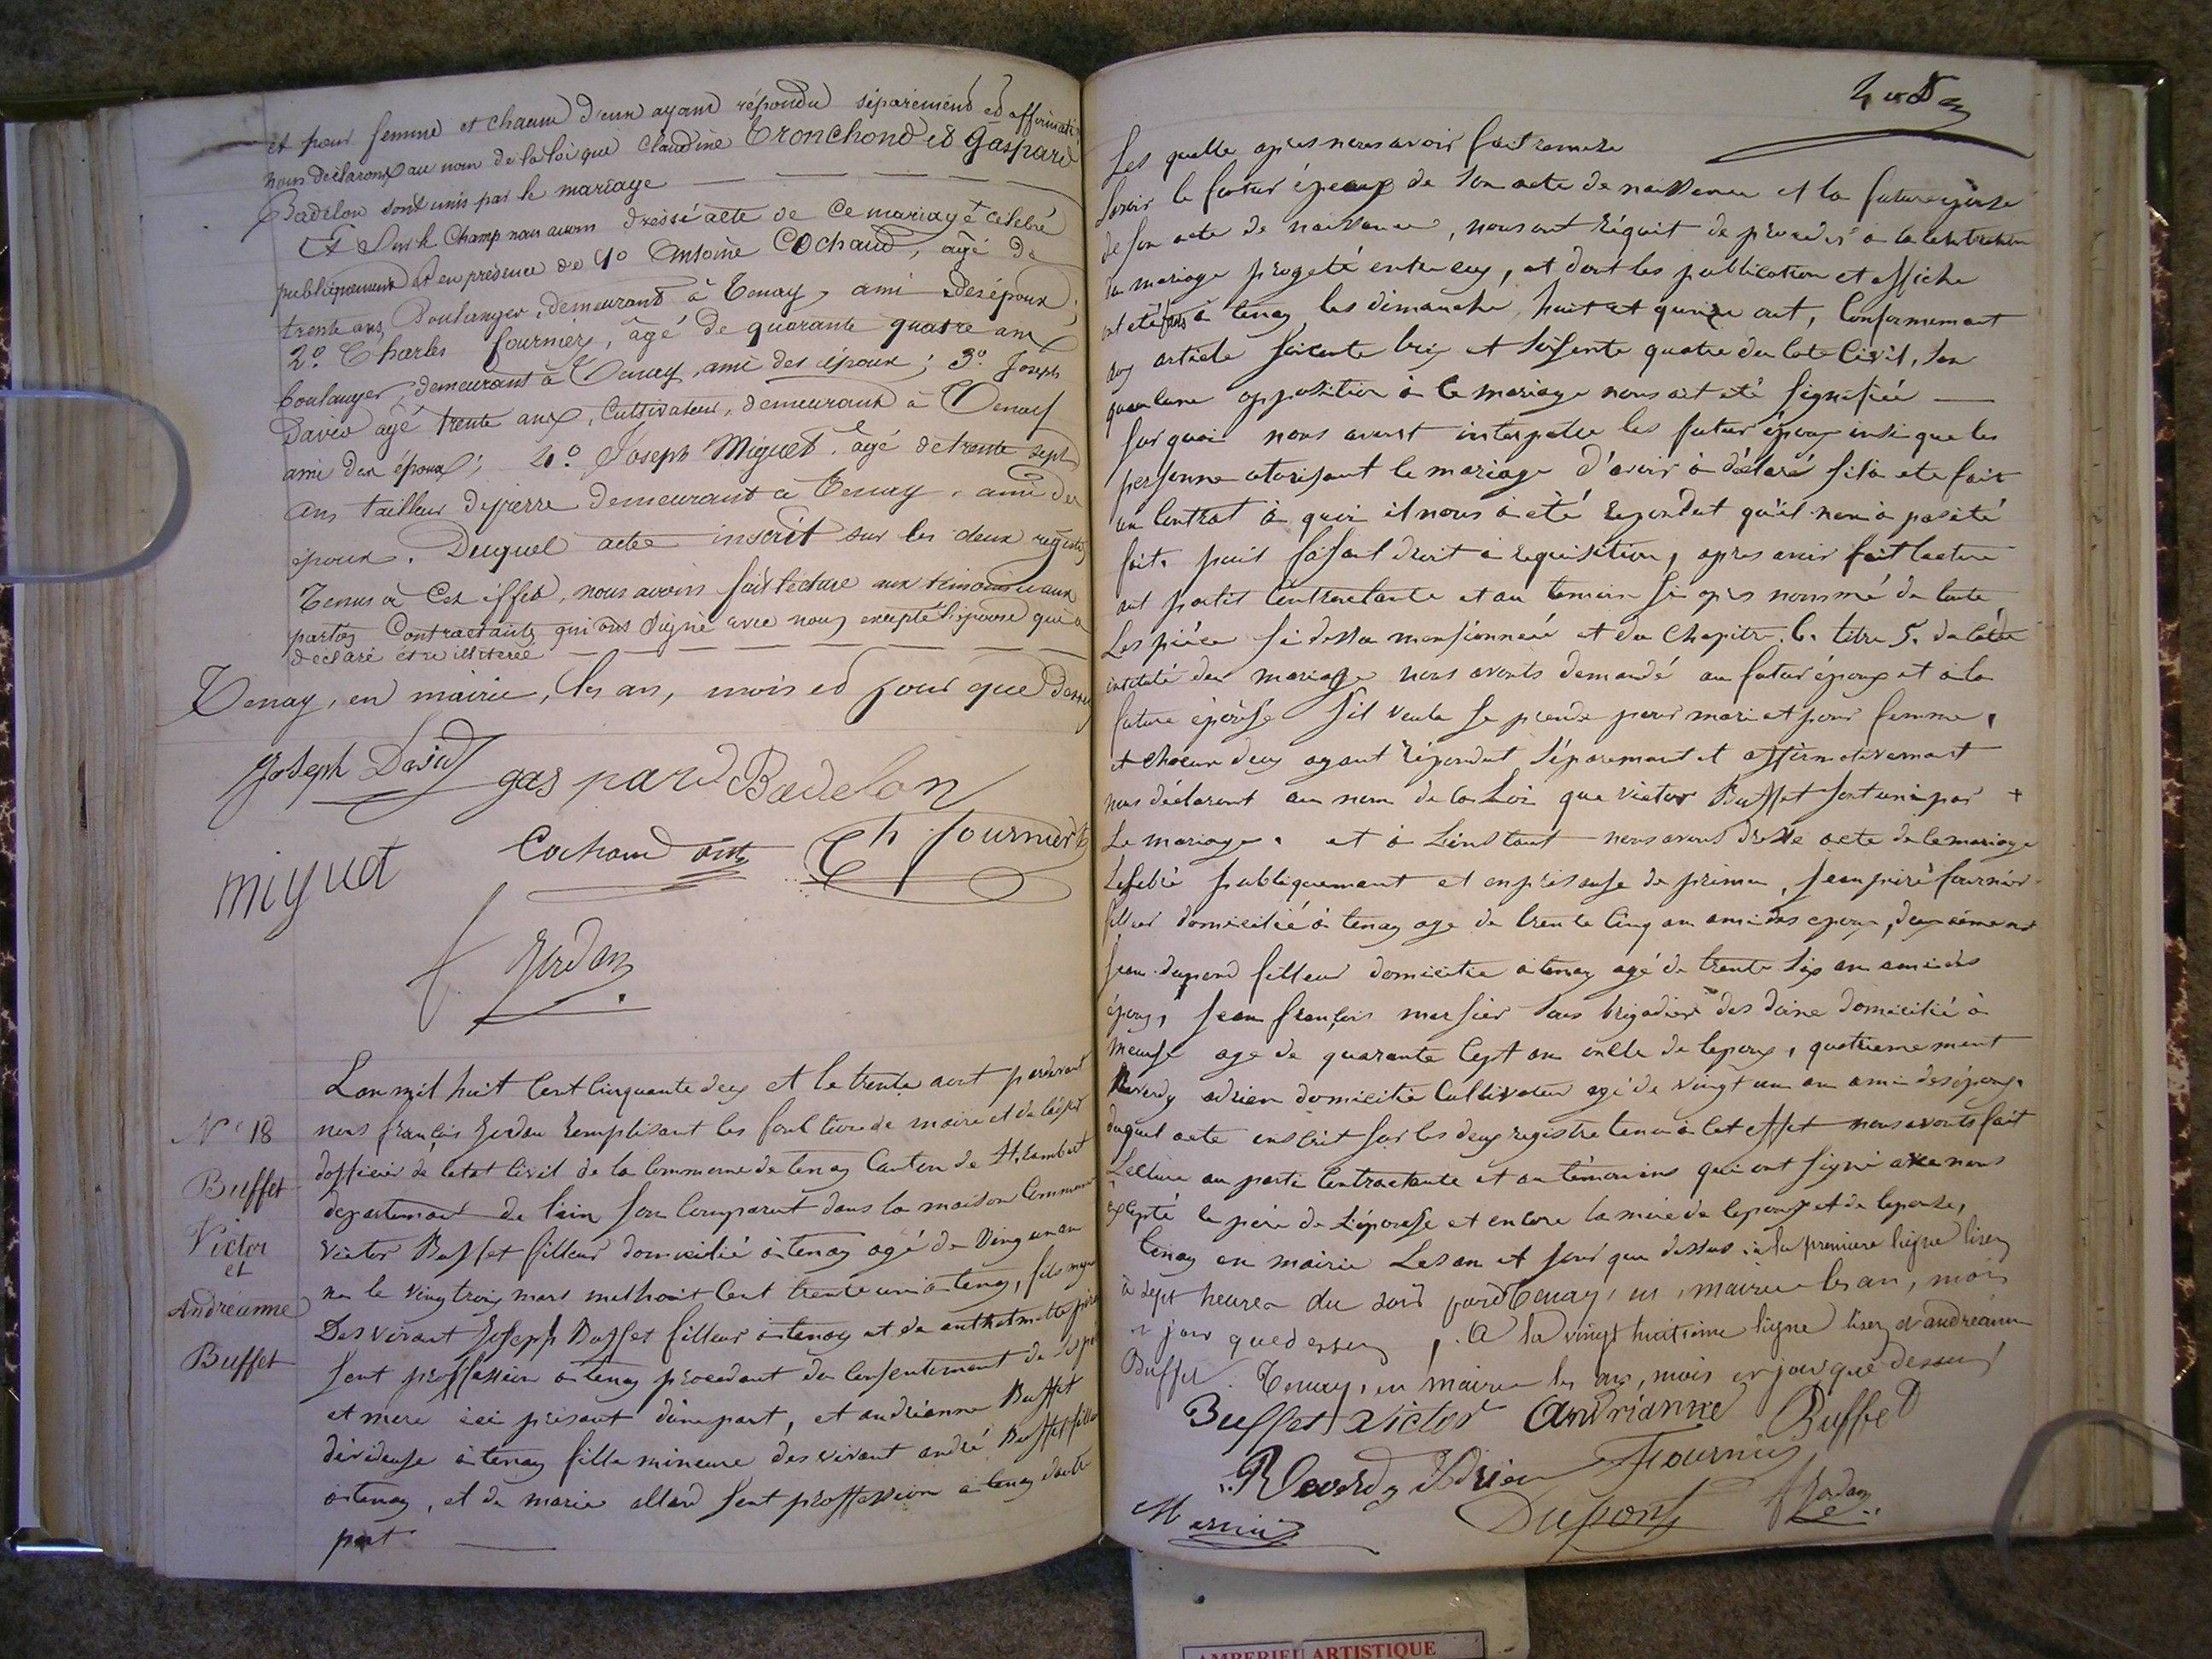 et pour femme et chacun d'eux ayant répondu séparément et affirmati
nous déclarons au nom de la loi que Claudine Tronchond et Gaspard
Badelon sont unis par le mariage
Et Sur le Champ nous avons dressé acte de Ce mariage célébré
publiquement et en présence de 1o Antoine Cochaud, agé de
trente ans, Boulanger, demeurant à Tenay, ami des époux;
2o. Charles fournier, âgé de quarante quatre ans
boulanger, demeurant à Tenay, ami des époux; 3o. Joseph
David agé trente ans, Cultivateur, demeurant à Tenay
ami des époux; 4o. Joseph Miguet, âgé de trente sept
ans tailleur de pierre demeurant à Tenay, ami des
époux. Duquel acte inscrit sur les deux registres
Tenus à Cet effet, nous avons fait lecture aux témoins et aux
parties Contractants qui ont signé avec nous excepté l'épouse qui a
déclaré être illiterée
Tenay, en mairie, les an, mois et jour que dessus
Joseph David gaspard Badelon
miguet Cochaud ant Ch fournier
f Jordan
Lan mil huit Cent Cinquante deux et le trente aout pardevant
No 18
nous françois Jordan remplisant les fonctions de maire et de
dofficier de letat Civil de la Commune de tenay Canton de St. rambert
Buffet
departement de lain son Comparut dans la maison Commune
Victor
victor Buffet filleur domicilié à tenay agé de ving un an
et
né le ving trois mars milhuit Cent trente un à tenay, fils
Andréanne
Des vivant Joseph Buffet filleur à tenay et de
Buffet
sent proffession à tenay procedant du Consentement de
et mere ici présant dune part, et andréanne Buffet
dévideuse à tenay fille mineure des vivant andré Buffet
à tenay, et de marie allard sent proffession à tenay dautre
part
Les quelle apres nous avoir fait remetre
Savoir le futur épeoux de son acte de naissance et la future épouse
de son acte de naissance, nous ont réquit de proceder à la
du mariage progeté entre eux, et dont les publication et affiche
ont été à tenay les dimanche huit et quinze out, Conformemant
aux article soixante trois et soisente quatre du Code Civil, san
opposition à Ce mariage nous ait eté signifiée
sur quoi nous avont interpelle les futur époux insi que les
personne atorisant le mariage d'avoir à déclaré sil a ete fait
un Contrat à quoi il nous à été repondut qu'il nan à pas été
fait. puit faisant droit à requisition, apres avoir fait lecture
aut partis Contractante et au temoin si apres nommé de toute
Les pièce si dessu mensionneé et du Chapitre 6. titre 5. du Code
intitulé du mariage nous avonts demandé au futur époux et à la
future épouse s'il veule se prendre pour mari et pour femme,
et chacun deux ayant répondut séparemant et affirmativemant
nous déclarent au nom de la Loi que victor Buffet sont uni par +
Le mariage. et à Linstant nous avons dressé acte de Ce mariage
Celebré publiquement et en présanse de primo, Jean piré fournier
filleur domicilié à tenay age de trente cinq an ami des epoux, deuxiemement
Jean dupond filleur domicilie à tenay agé de trente six an ami des
époux, Jean françois mersier sous brigadier des doine domicilié à
age de quarante sept an oncle de lepoux, quatriememant
Reverdy adrien domicilié Cultivateur agé de vingt un an ami des époux.
duquel acte inscrit sur les deux registre tenu à Cet effet nous avonts fait
Lecture au parti Contractante et au témoins qui ont signé avec nous
éxcepté le père de L'épouse et encore la mère de lepoux et de lepouse,
tenay en mairie Les an et jour que dessus à la premiere ligne lisez
à sept heures du soir Tenay, en mairie les an, mois
et jour que dessus, A la vingt huitieme ligne lisez et andréanne
Buffet. Tenay, en mairie les ans, mois et jour que dessus
Buffet victor Andrianne Buffet
Reverdy Adrien Fournier
Mersier Dupont f Jordan
AMBERIEU ARTISTIQUE